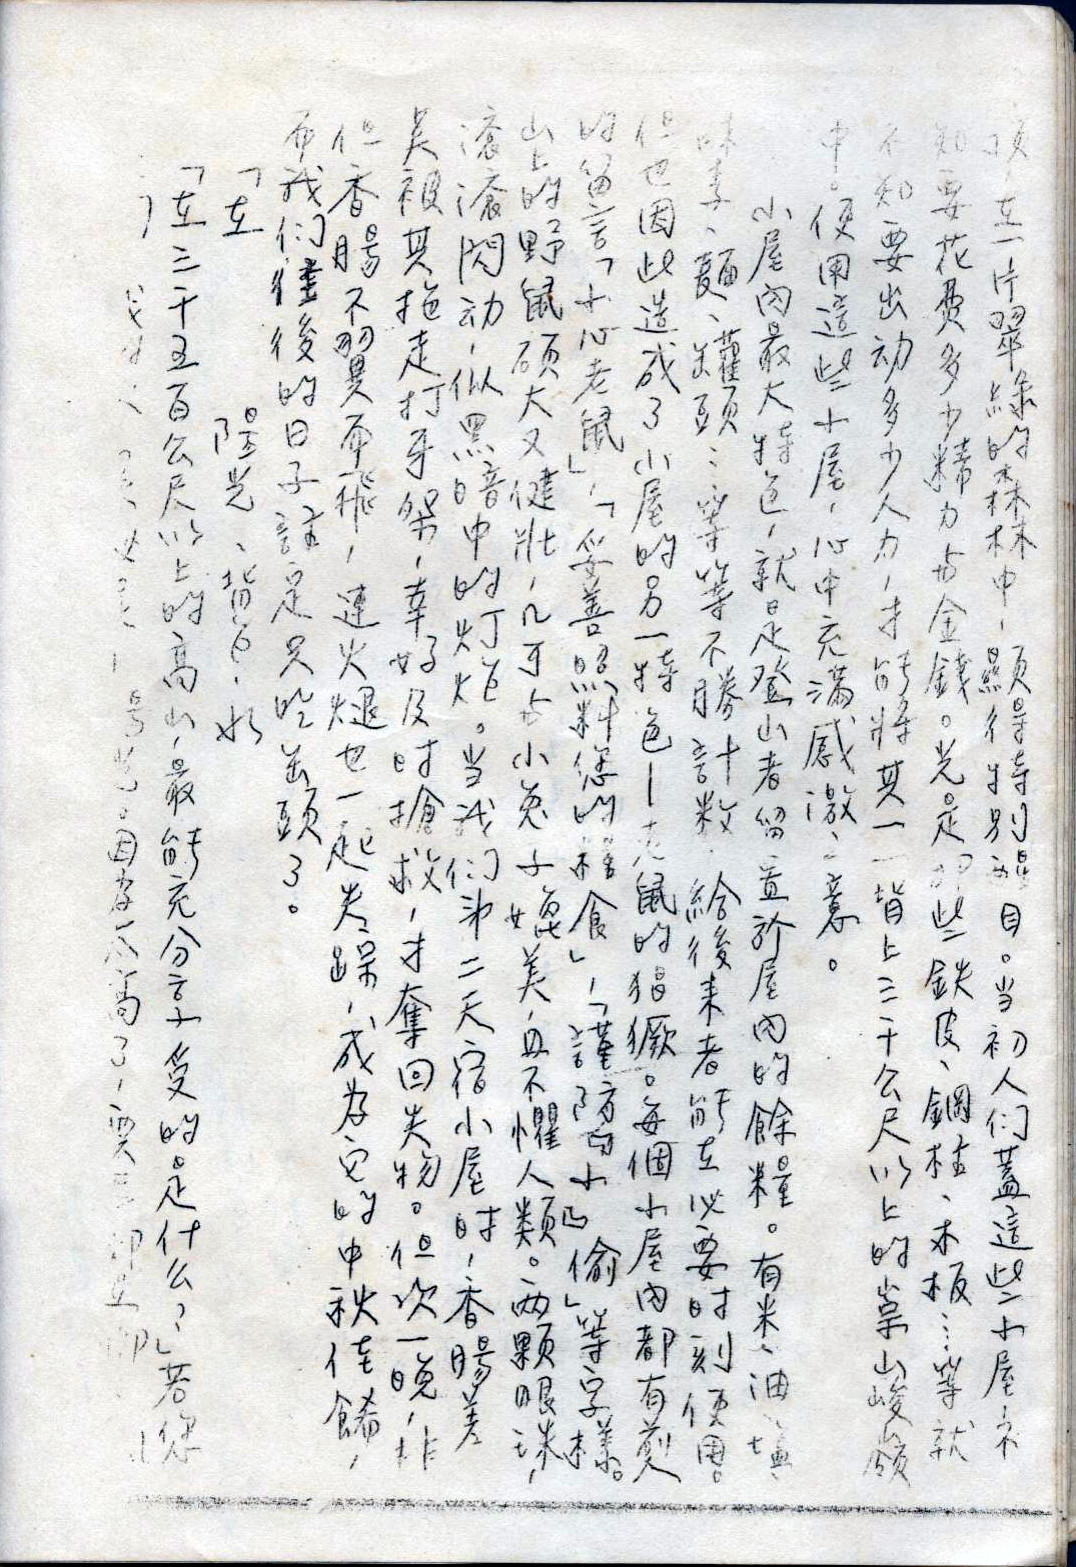 頂,在一片翠綠的森林中,顯得特別醒目。当初人们蓋這些小屋,不
知要花費多少精力与金錢。光是那些鉄皮、鋼柱、木板…等就
不知要出动多少人力,才能够將其一一揹上三千公尺以上的崇山峻嶺
中。使用這些小屋,心中充滿感激之意。
小屋內最大特色,就是登山者留置於屋內的餘糧。有米、油、塩、
味素、麵、罐頭…等等不勝計数,給後来者能在必要时刻使用。
但也因此造成了小屋的另一特色—老鼠的猖獗。每個小屋內都有前人
的留言「小心老鼠」,「妥善照料您的糧食」,「謹防鼠小偷」等字樣。
山上的野鼠碩大又健壯,几可与小兔子媲美,且不懼人類。两顆眼珠,
滾滾閃动,似黑暗中的灯炮。当我们第二天宿小屋时,香腸差
点被其拖走打牙祭,幸好及时搶救,才奪回失物。但次一晚,炸
但香腸不翼而飛,連火腿也一起失踪,成为它的中秋佳餚,
而我们僅後的日子註定只吃缶頭了。
「在 陽光、揹包、水
「在三千五百公尺以上的高山,最能充分享受的是什么?」若您